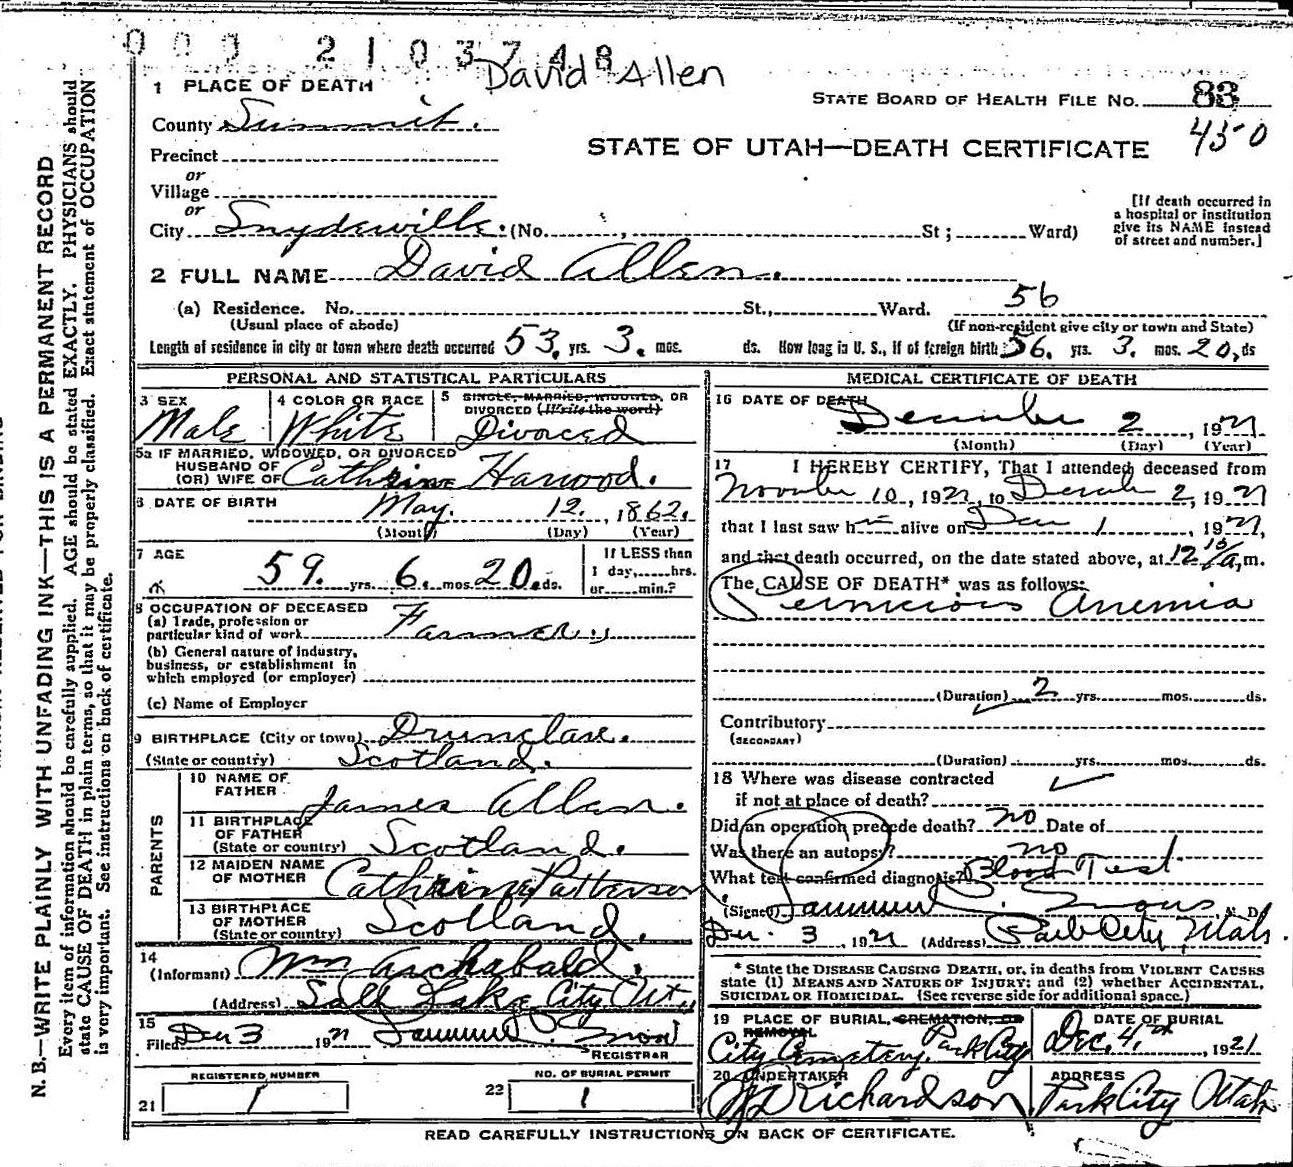 0 0 0 2 1 0 3 7 4 8
David Allen
1 PLACE OF DEATH
STATE BOARD OF HEALTH FILE NO. 83
County Summit.
450
STATE OF UTAH—DEATH CERTIFICATE
Precinct
or
Village
or
City Snyderville. (No. , St; Ward)
[If death occurred in a hospital or institution give its NAME instead of street and number.]
2 FULL NAME David Allen.
56
(a) Residence. No. St., Ward.
(Usual place of abode) (If non-resident give city or town and State)
Length of residence in city or town where death occurred 53. yrs. 3. mos. ds. How long in U. S., if of foreign birth 56. yrs. 3. mos. 20. ds
PERSONAL AND STATISTICAL PARTICULARS
3 SEX
Male
4 COLOR OR RACE
White
5 SINGLE, MARRIED, WIDOWED, OR DIVORCED (Write the word)
Divorced
5a IF MARRIED, WIDOWED, OR DIVORCED
HUSBAND OF
(OR) WIFE OF Cathrine Harwood.
6 DATE OF BIRTH May. 12. , 1862.
(Month) (Day) (Year)
7 AGE
59. yrs. 6. mos. 20. ds.
If LESS than
1 day,.....hrs.
or.....min.?
8 OCCUPATION OF DECEASED
(a) Trade, profession or
particular kind of work Farmer
(b) General nature of industry,
business, or establishment in
which employed (or employer)
(c) Name of Employer
9 BIRTHPLACE (City or town)
(State or country) Scotland.
PARENTS
10 NAME OF
FATHER James Allen.
11 BIRTHPLACE
OF FATHER
(State or country) Scotland.
12 MAIDEN NAME
OF MOTHER Cathrine Patterson
13 BIRTHPLACE
OF MOTHER
(State or country) Scotland.
14
(Informant) Wm Archabald.
(Address) Salt Lake City Ut.,
15
Filed Dec 3 1921 Sammuel P. Snow
REGISTRAR
REGISTERED NUMBER
21 1
NO. OF BURIAL PERMIT
22 1
MEDICAL CERTIFICATE OF DEATH
16 DATE OF DEATH
December 2 , 1921
(Month) (Day) (Year)
17 I HEREBY CERTIFY, That I attended deceased from
November 10, 1921, to December 2, 1921
that I last saw h alive on Dec 1 , 1921,
and that death occurred, on the date stated above, at 12 15/a, m.
The CAUSE OF DEATH* was as follows:
Pernicious Anemia
(Duration) 2 yrs. mos. ds.
Contributory
(SECONDARY)
(Duration) yrs. mos. ds.
18 Where was disease contracted
if not at place of death?
Did an operation precede death? no Date of
Was there an autopsy? no
What test confirmed diagnosis? Blood Test.
(Signed) Sammuel P. Snow, M. D.
Dec. 3 , 1921 (Address) Park City, Utah.
* State the DISEASE CAUSING DEATH, or, in deaths from VIOLENT CAUSES
state (1) MEANS AND NATURE OF INJURY; and (2) whether ACCIDENTAL,
SUICIDAL OR HOMICIDAL. (See reverse side for additional space.)
19 PLACE OF BURIAL, CREMATION, OR
REMOVAL
City Cemetery, Park City
DATE OF BURIAL
Dec. 4th , 1921
20 UNDERTAKER
Richardson
ADDRESS
Park City Utah
READ CAREFULLY INSTRUCTIONS ON BACK OF CERTIFICATE.
N. B.—WRITE PLAINLY WITH UNFADING INK—THIS IS A PERMANENT RECORD
Every item of information should be carefully supplied. AGE should be stated EXACTLY. PHYSICIANS should
state CAUSE OF DEATH in plain terms, so that it may be properly classified. Exact statement of OCCUPATION
is very important. See instructions on back of certificate.